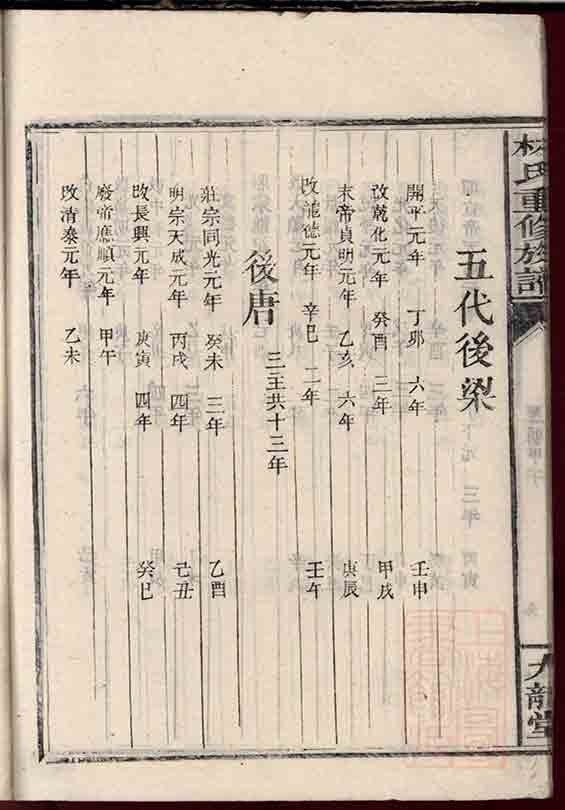 林氏重修族譜
九龍堂
五代後梁
開平元年 丁卯 六年 壬申
改乾化元年 癸酉 三年 甲戌
末帝貞明元年 乙亥 六年 庚辰
改龍德元年 辛巳 二年 壬午
後唐 三王共十三年
莊宗同光元年 癸未 三年 乙酉
明宗天成元年 丙戌 四年 己丑
改長興元年 庚寅 四年 癸巳
廢帝應順元年 甲午
改清泰元年 乙未